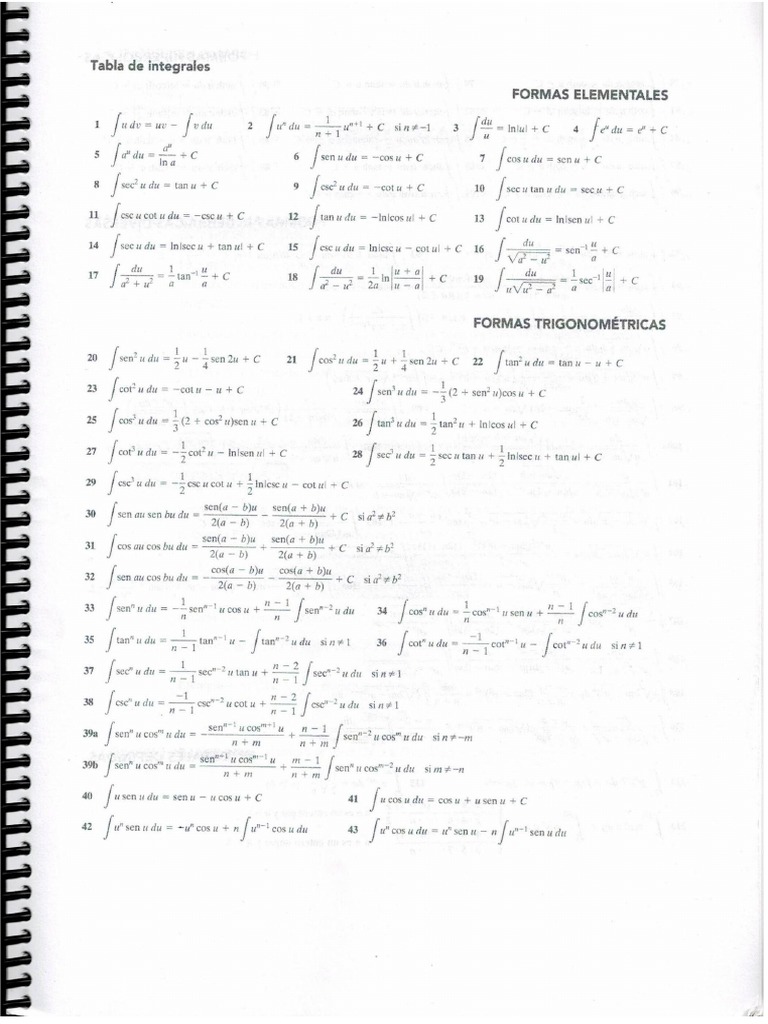 Tabla de integrales
FORMAS ELEMENTALES
1 ∫ u dv = uv − ∫ v du 2 ∫ uⁿ du = 1/(n + 1) uⁿ⁺¹ + C si n ≠ −1 3 ∫ du/u = ln|u| + C 4 ∫ eᵘ du = eᵘ + C
5 ∫ aᵘ du = aᵘ/ln a + C 6 ∫ sen u du = −cos u + C 7 ∫ cos u du = sen u + C
8 ∫ sec² u du = tan u + C 9 ∫ csc² u du = −cot u + C 10 ∫ sec u tan u du = sec u + C
11 ∫ csc u cot u du = −csc u + C 12 ∫ tan u du = −ln|cos u| + C 13 ∫ cot u du = ln|sen u| + C
14 ∫ sec u du = ln|sec u + tan u| + C 15 ∫ csc u du = ln|csc u − cot u| + C 16 ∫ du/√(a² − u²) = sen⁻¹ u/a + C
17 ∫ du/(a² + u²) = 1/a tan⁻¹ u/a + C 18 ∫ du/(a² − u²) = 1/2a ln|(u + a)/(u − a)| + C 19 ∫ du/(u√(u² − a²)) = 1/a sec⁻¹ |u/a| + C
FORMAS TRIGONOMÉTRICAS
20 ∫ sen² u du = 1/2 u − 1/4 sen 2u + C 21 ∫ cos² u du = 1/2 u + 1/4 sen 2u + C 22 ∫ tan² u du = tan u − u + C
23 ∫ cot² u du = −cot u − u + C 24 ∫ sen³ u du = −1/3 (2 + sen² u)cos u + C
25 ∫ cos³ u du = 1/3 (2 + cos² u)sen u + C 26 ∫ tan³ u du = 1/2 tan² u + ln|cos u| + C
27 ∫ cot³ u du = −1/2 cot² u − ln|sen u| + C 28 ∫ sec³ u du = 1/2 sec u tan u + 1/2 ln|sec u + tan u| + C
29 ∫ csc³ u du = −1/2 csc u cot u + 1/2 ln|csc u − cot u| + C
30 ∫ sen au sen bu du = sen(a − b)u/2(a − b) − sen(a + b)u/2(a + b) + C si a² ≠ b²
31 ∫ cos au cos bu du = sen(a − b)u/2(a − b) + sen(a + b)u/2(a + b) + C si a² ≠ b²
32 ∫ sen au cos bu du = −cos(a − b)u/2(a − b) − cos(a + b)u/2(a + b) + C si a² ≠ b²
33 ∫ senⁿ u du = −1/n senⁿ⁻¹ u cos u + (n − 1)/n ∫ senⁿ⁻² u du 34 ∫ cosⁿ u du = 1/n cosⁿ⁻¹ u sen u + (n − 1)/n ∫ cosⁿ⁻² u du
35 ∫ tanⁿ u du = 1/(n − 1) tanⁿ⁻¹ u − ∫ tanⁿ⁻² u du si n ≠ 1 36 ∫ cotⁿ u du = −1/(n − 1) cotⁿ⁻¹ u − ∫ cotⁿ⁻² u du si n ≠ 1
37 ∫ secⁿ u du = 1/(n − 1) secⁿ⁻² u tan u + (n − 2)/(n − 1) ∫ secⁿ⁻² u du si n ≠ 1
38 ∫ cscⁿ u du = −1/(n − 1) cscⁿ⁻² u cot u + (n − 2)/(n − 1) ∫ cscⁿ⁻² u du si n ≠ 1
39a ∫ senⁿ u cosᵐ u du = −senⁿ⁻¹ u cosᵐ⁺¹ u/(n + m) + (n − 1)/(n + m) ∫ senⁿ⁻² u cosᵐ u du si n ≠ −m
39b ∫ senⁿ u cosᵐ u du = senⁿ⁺¹ u cosᵐ⁻¹ u/(n + m) + (m − 1)/(n + m) ∫ senⁿ u cosᵐ⁻² u du si m ≠ −n
40 ∫ u sen u du = sen u − u cos u + C 41 ∫ u cos u du = cos u + u sen u + C
42 ∫ uⁿ sen u du = −uⁿ cos u + n ∫ uⁿ⁻¹ cos u du 43 ∫ uⁿ cos u du = uⁿ sen u − n ∫ uⁿ⁻¹ sen u du